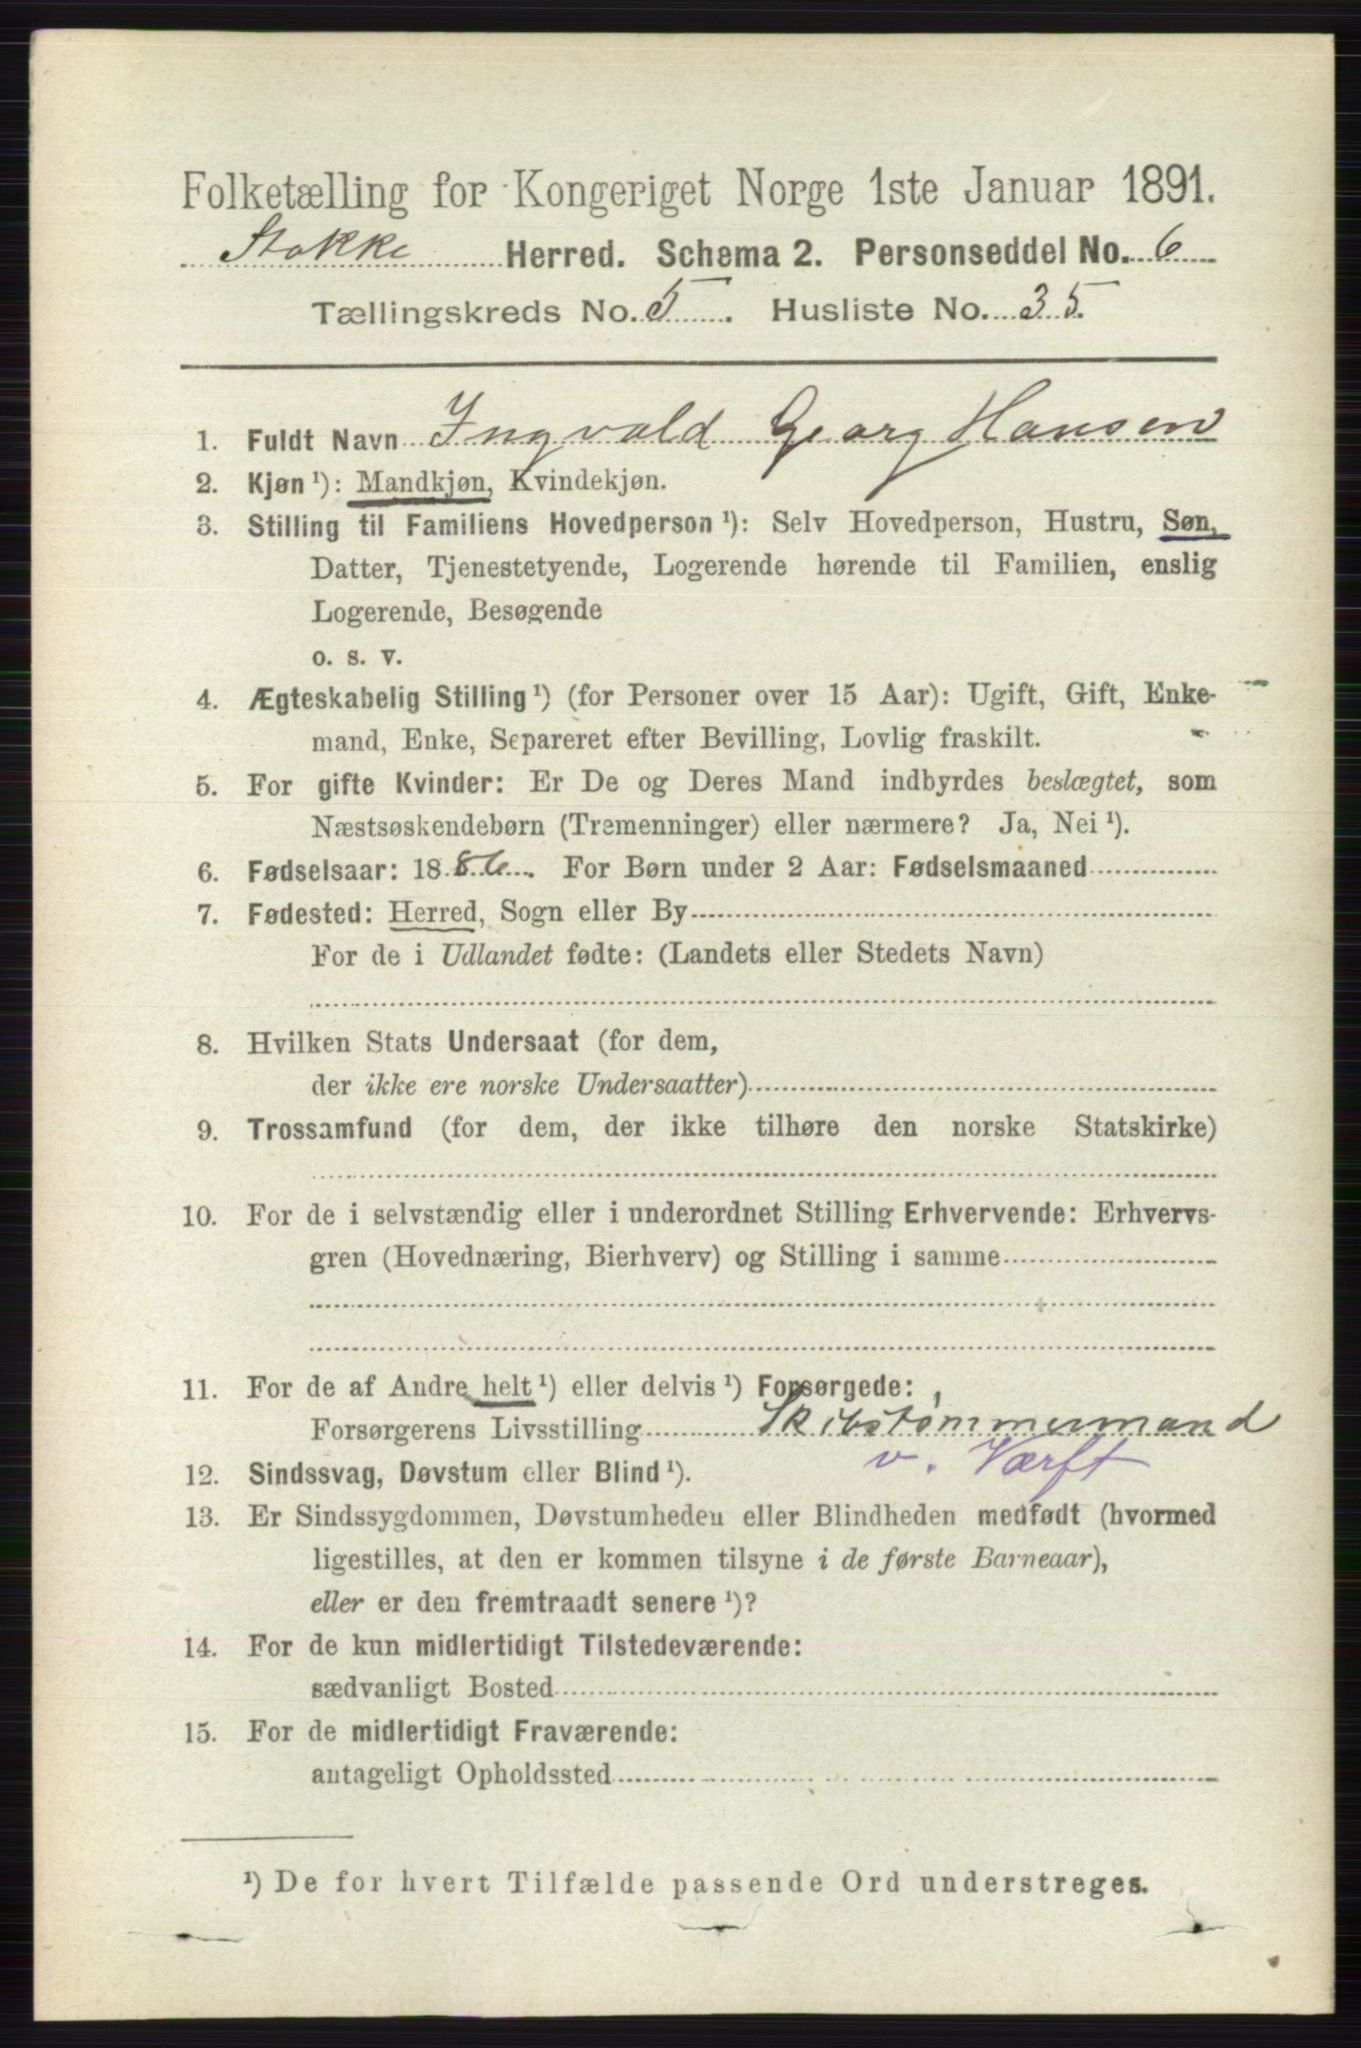 Folketælling for Kongeriget Norge 1ste Januar 1891.
Stokke Herred. Schema 2. Personseddel No. 6
Tællingskreds No. 5. Husliste No. 35.
1. Fuldt Navn Ingvald Georg Hansen
2. Kjøn¹): Mandkjøn, Kvindekjøn.
3. Stilling til Familiens Hovedperson¹): Selv Hovedperson, Hustru, Søn,
Datter, Tjenestetyende, Logerende hørende til Familien, enslig
Logerende, Besøgende
o. s. v.
4. Ægteskabelig Stilling¹) (for Personer over 15 Aar): Ugift, Gift, Enke-
mand, Enke, Separeret efter Bevilling, Lovlig fraskilt.
5. For gifte Kvinder: Er De og Deres Mand indbyrdes beslægtet, som
Næstsøskendebørn (Tremenninger) eller nærmere? Ja, Nei¹).
6. Fødselsaar: 1886. For Børn under 2 Aar: Fødselsmaaned
7. Fødested: Herred, Sogn eller By
For de i Udlandet fødte: (Landets eller Stedets Navn)
8. Hvilken Stats Undersaat (for dem,
der ikke ere norske Undersaatter)
9. Trossamfund (for dem, der ikke tilhøre den norske Statskirke)
10. For de i selvstændig eller i underordnet Stilling Erhvervende: Erhvervs-
gren (Hovednæring, Bierhverv) og Stilling i samme
11. For de af Andre helt¹) eller delvis¹) Forsørgede:
Forsørgerens Livsstilling Skibstømmermand
v. Værft
12. Sindssvag, Døvstum eller Blind¹).
13. Er Sindssygdommen, Døvstumheden eller Blindheden medfødt (hvormed
ligestilles, at den er kommen tilsyne i de første Barneaar),
eller er den fremtraadt senere¹)?
14. For de kun midlertidigt Tilstedeværende:
sædvanligt Bosted
15. For de midlertidigt Fraværende:
antageligt Opholdssted
¹) De for hvert Tilfælde passende Ord understreges.